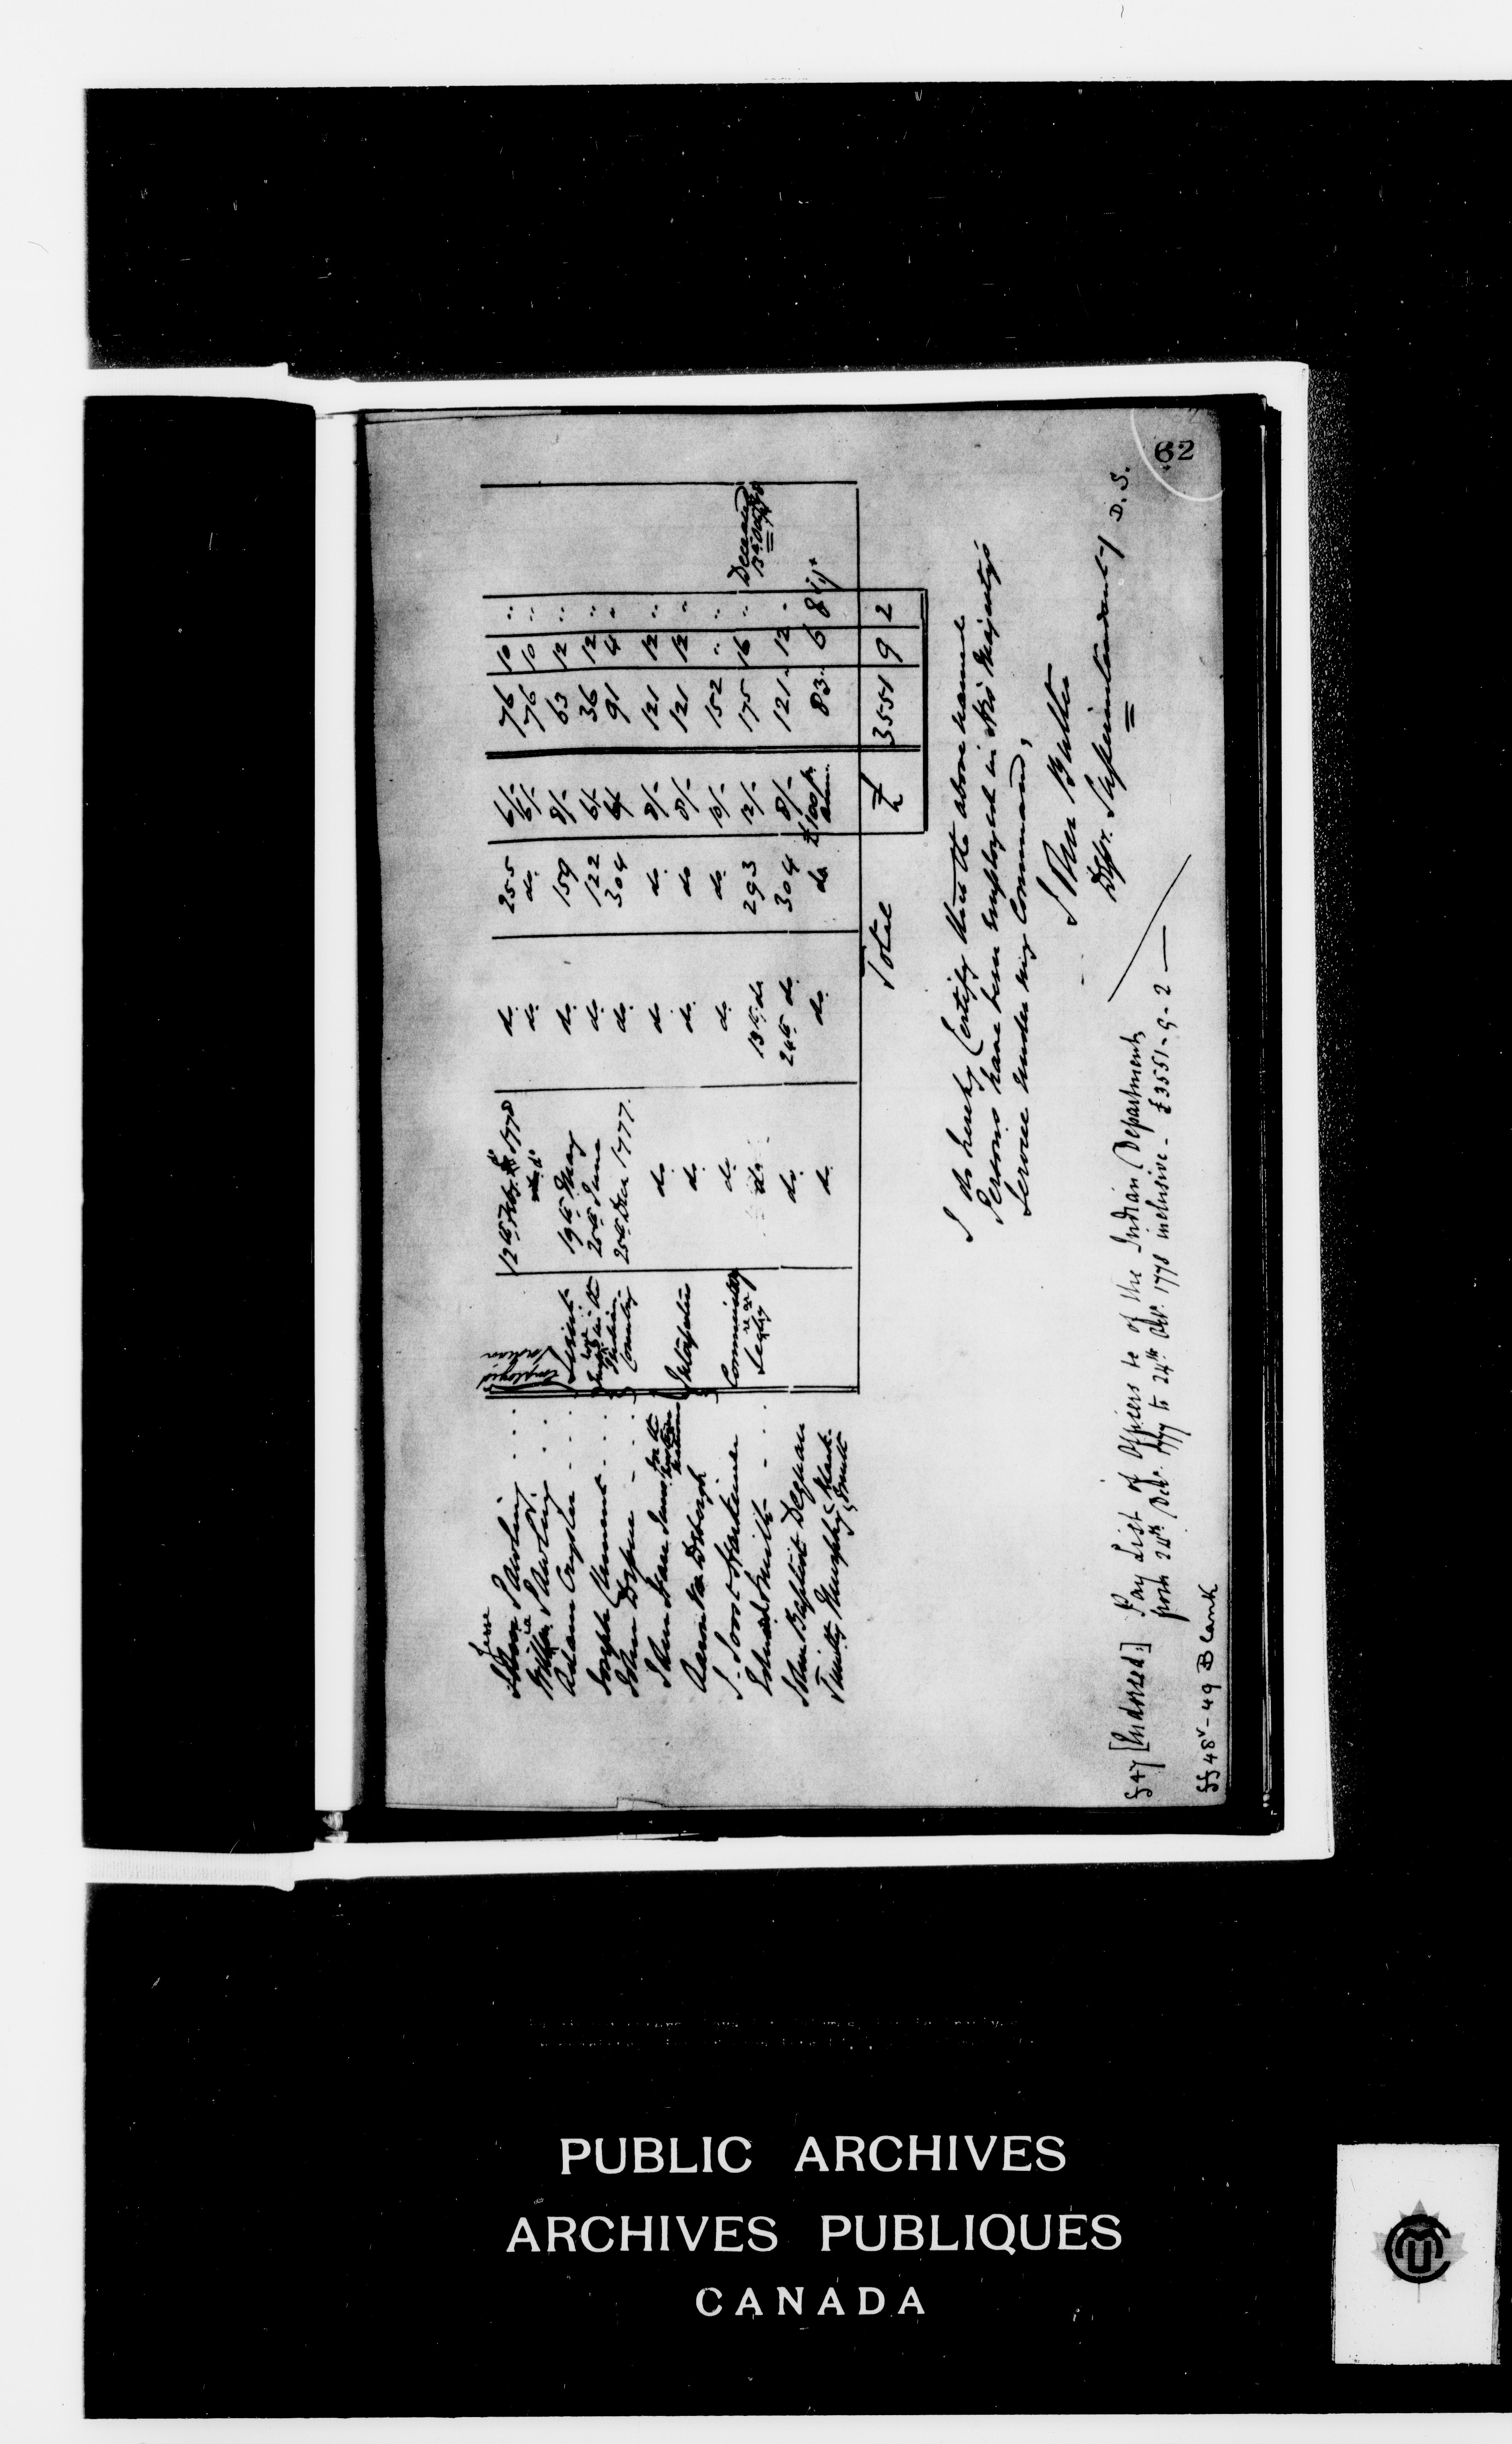 62
Jesse
Pawling 12th Feby. 1778 do. 255 6/- 76 10 ..
Pawling do. do. 6/- 76 10 ..
Adam Crysler 19th May do. 159 8/- 63 12 ..
Joseph Clement 25th June do. 122 6/- 36 12 ..
John Depue 25th Decr 1777. do. 304 6/- 91 4 ..
Employed Indian
in the Indian Country
John do. do. do. 8/- 121 12 ..
Aaron do. do. do 8/- 121 12 ..
J. Joost Herkimer Commissary do. do. do. 10/- 152 .. ..
Edward Smith do. 13th do 293 12/- 175 16 .. Deceased
John Baptist do. 24th do. 304 8/- 121 12 -
Timothy Murphy Black-Smith do. do. do £100 pr. ann. 83 6 8
Total £ 3551 9 2
I do hereby Certify that the above named
Persons have been employed in His Majesty's
Service under my Command,
John Butler
Depy. Superintendant / D. S.
f 47 [Endorsed] Pay List of Officers &c of the Indian Department
from 24th Decr. 1777 to 24th Octr. 1778 inclusive - £3551-9-2
ff 48v - 49 Blank
PUBLIC ARCHIVES
ARCHIVES PUBLIQUES
CANADA